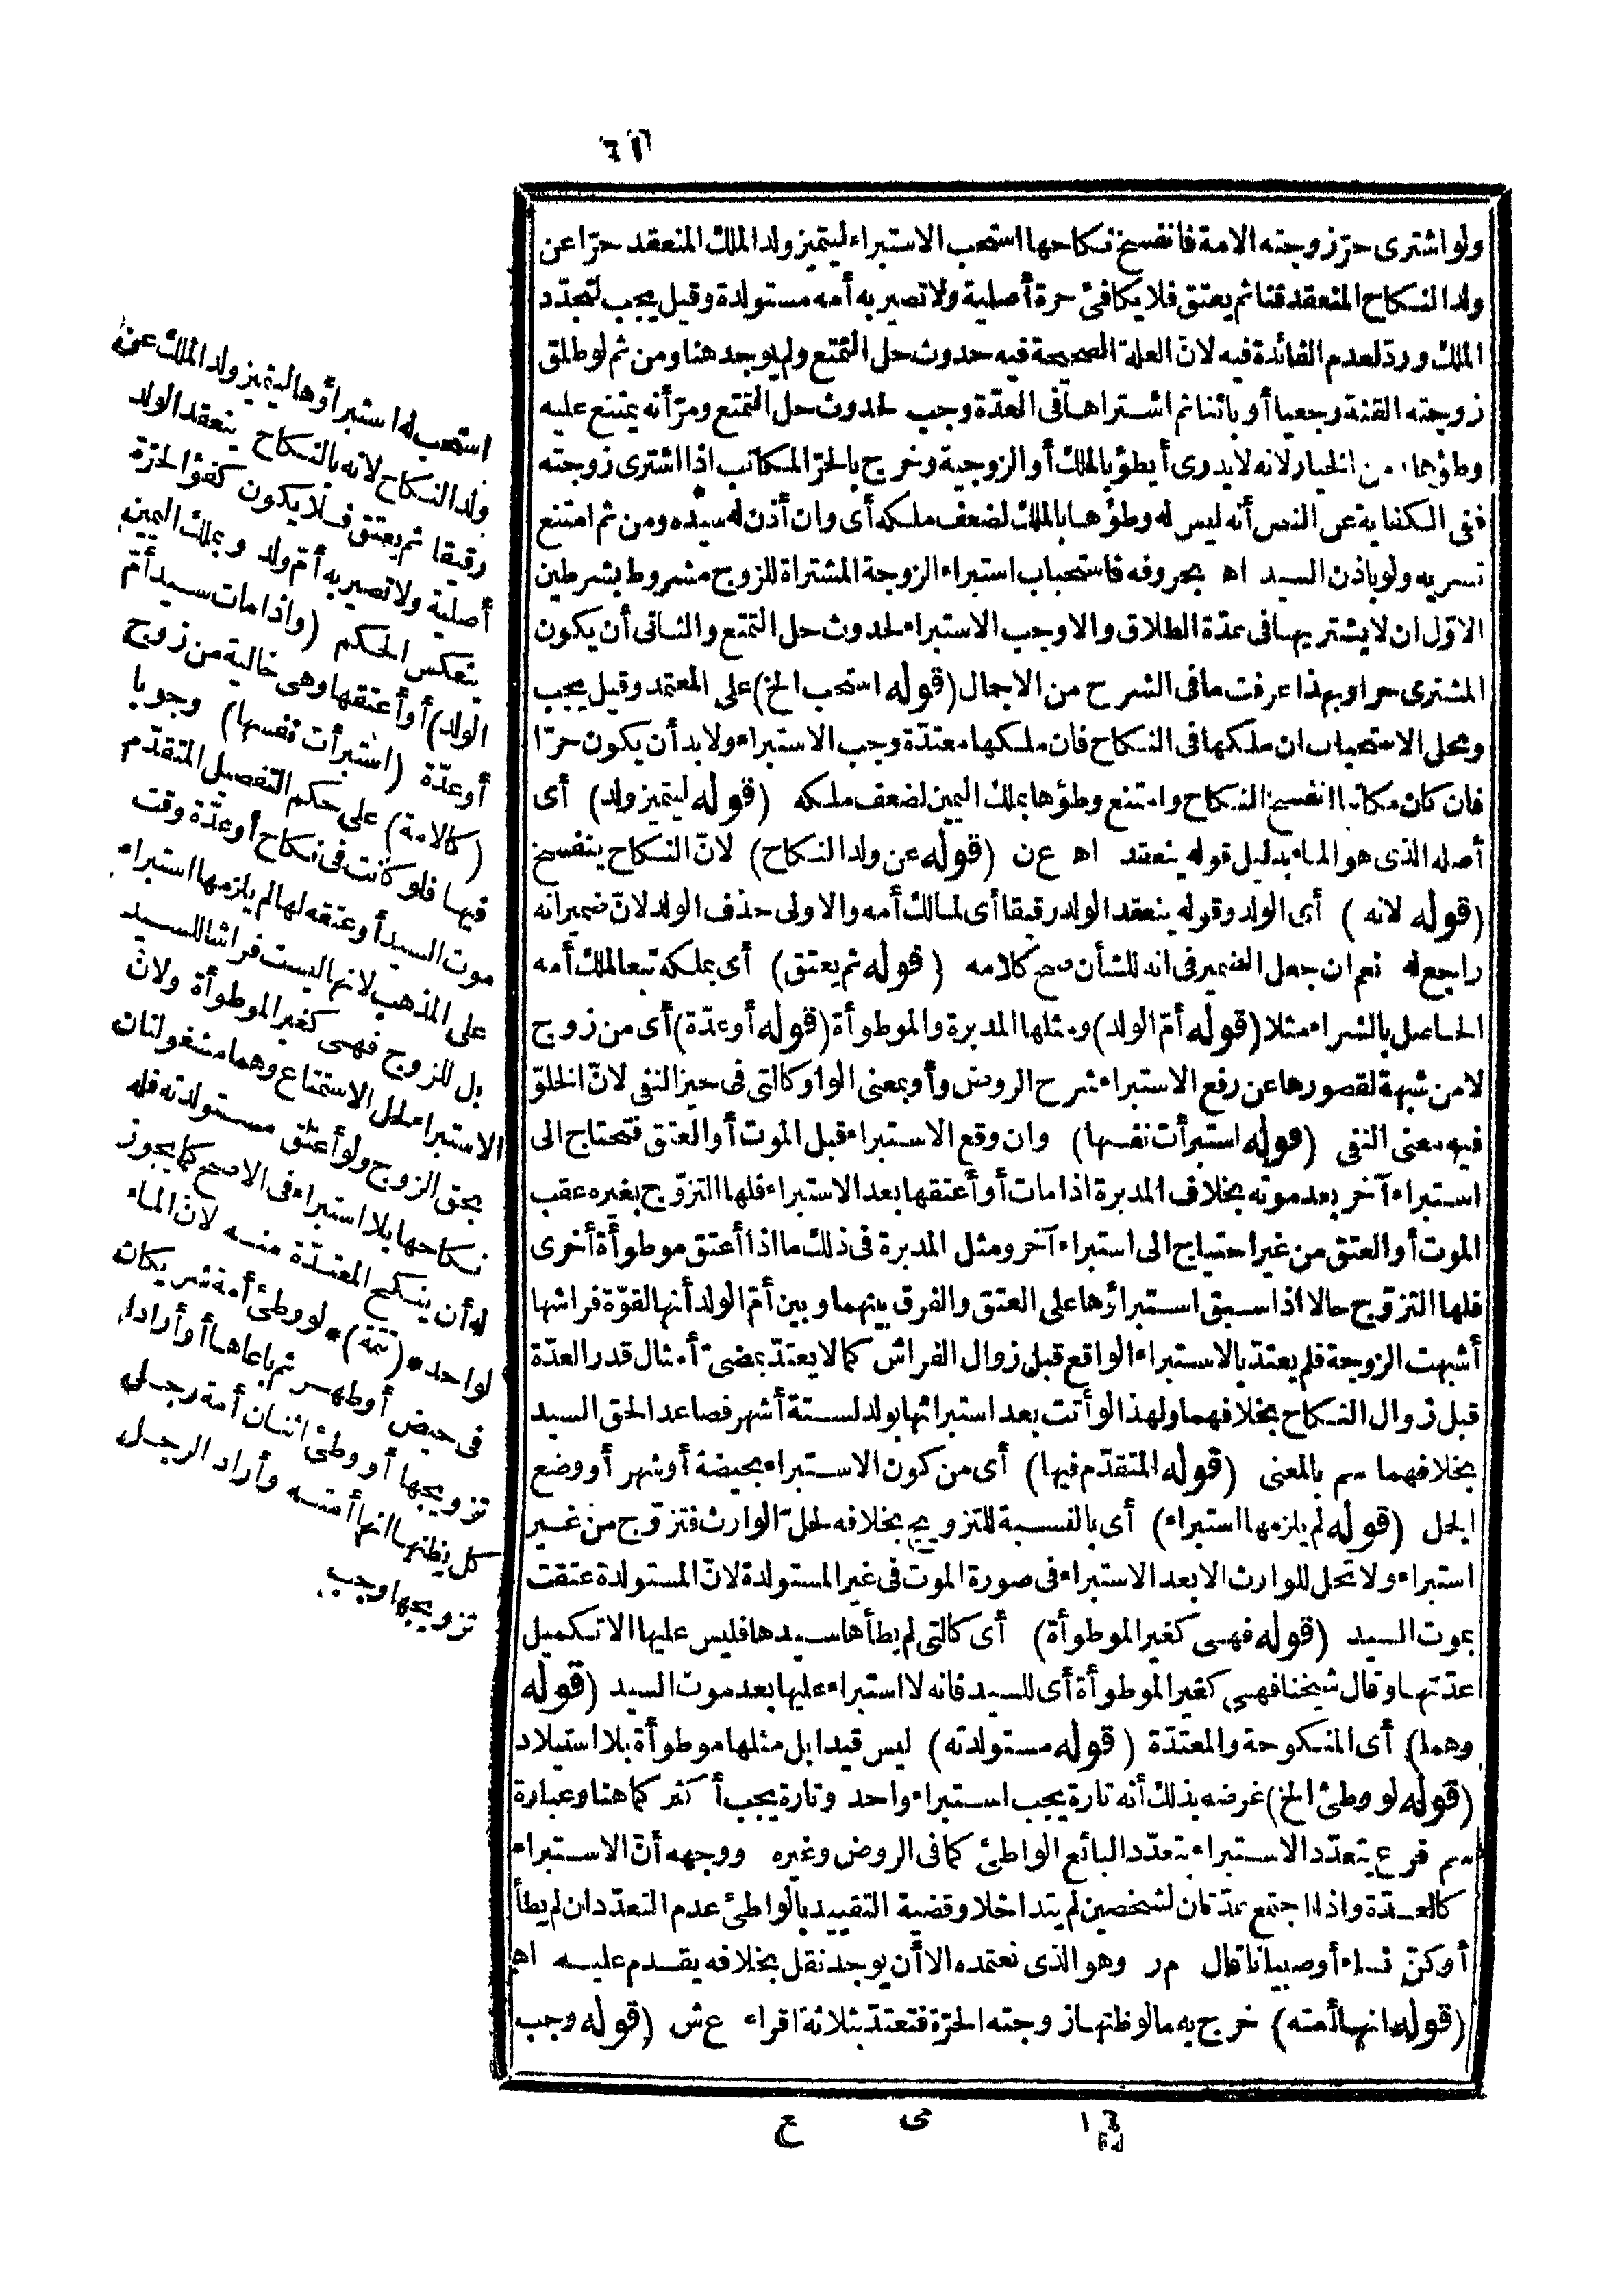 ولو اشترى حرّ زوجته الامة فانفسخ نكاحها استحب الاستبراء ليتميز ولد الملك المنعقد حرّا عن
ولد النكاح المنعقد قنا ثم يعتق فلا يكافئ حرة أصلية ولا تصير به أمه مستولدة وقيل يجب لتجدّد
الملك وردّ لعدم الفائدة فيه لانّ العلة الصحيحة فيه حدوث حل التمتع ولم يوجد هنا ومن ثم لو طلق
زوجته القنة رجعيا أو بائنا ثم اشتراها فى العدّة وجب لحدوث حل التمتع ومرّ أنه يمتنع عليه
وطؤها من الخيار لانه لا يدرى أيطؤ بالملك أو الزوجية وخرج بالحرّ المكاتب اذا اشترى زوجته
ففى الكفاية عن النص أنه ليس له وطؤها بالملك لضعف ملكه أى وان أذن له سيده ومن ثم امتنع
تسريه ولو باذن السيد اه بحروفه فاستحباب استبراء الزوجة المشتراة للزوج مشروط بشرطين
الاوّل ان لا يشتريها فى عدّة الطلاق والاوجب الاستبراء لحدوث حل التمتع والثانى أن يكون
المشترى حرا وبهذا عرفت ما فى الشرح من الاجمال (قوله استحب الخ) على المعتمد وقيل يجب
ومحل الاستحباب ان ملكها فى النكاح فان ملكها معتدّة وجب الاستبراء ولا بد أن يكون حرّا
فان كان مكاتبا انفسخ النكاح وامتنع وطؤها بملك اليمين لضعف ملكه (قوله ليتميز ولد) أى
أصله الذى هو الماء بدليل قوله ينعقد اه ع ن (قوله عن ولد النكاح) لانّ النكاح ينفسخ
(قوله لانه) أى الولد وقوله ينعقد الولد رقيقا أى لمالك أمه والاولى حذف الولد لانّ ضمير انه
راجع له نعم ان جعل الضمير فى انه للشأن صح كلامه (قوله ثم يعتق) أى بملكه تبعا لملك أمه
الحاصل بالشراء مثلا (قوله أمّ الولد) ومثلها المدبرة والموطوأة (قوله أو عدّة) أى من زوج
لا من شبهة لقصورها عن رفع الاستبراء شرح الروض وأو بمعنى الواو كالتى فى حيز النفى لانّ الخلوّ
فيه معنى النفى (قوله استبرأت نفسها) وان وقع الاستبراء قبل الموت أو العتق فتحتاج الى
استبراء آخر بعد موته بخلاف المدبرة اذا مات أو أعتقها بعد الاستبراء فلها التزوّج بغيره عقب
الموت أو العتق من غير احتياج الى استبراء آخر ومثل المدبرة فى ذلك ما اذا أعتق موطوأة أخرى
فلها التزوّج حالا اذا سبق استبراؤها على العتق والفرق بينهما وبين أمّ الولد أنها لقوّة فراشها
أشبهت الزوجة فلم يعتدّ بالاستبراء الواقع قبل زوال الفراش كما لا يعتدّ بمضىّ أمثال قدر العدّة
قبل زوال النكاح بخلافهما ولهذا لو أتت بعد استبرائها بولد لستة أشهر فصاعدا لحق السيد
بخلافهما سم بالمعنى (قوله المتقدّم فيها) أى من كون الاستبراء بحيضة أو شهر أو وضع
الحمل (قوله لم يلزمها استبراء) أى بالنسبة للتزويج بخلافه لحلّ الوارث فتزوّج من غير
استبراء ولا تحل للوارث الا بعد الاستبراء فى صورة الموت فى غير المستولدة لانّ المستولدة عتقت
بموت السيد (قوله فهى كغير الموطوأة) أى كالتى لم يطأها سيدها فليس عليها الا تكميل
عدّتها وقال شيخنا فهى كغير الموطوأة أى للسيد فانه لا استبراء عليها بعد موت السيد (قوله
وهما) أى المنكوحة والمعتدّة (قوله مستولدته) ليس قيدا بل مثلها موطوأة بلا استيلاد
(قوله لو وطئ الخ) غرضه بذلك أنه تارة يجب استبراء واحد وتارة يجب أكثر كما هنا وعبارة
سم فرع يتعدّد الاستبراء بتعدّد البائع الواطئ كما فى الروض وغيره ووجهه أنّ الاستبراء
كالعدّة واذا اجتمع عدّتان لشخصين لم يتداخلا وقضية التقييد بالواطئ عدم التعدّد ان لم يطأ
أو كنّ نساء أو صبيانا قال م ر وهو الذى نعتمده الا أن يوجد نقل بخلافه يقدم عليه اه
(قوله انها أمته) خرج به ما لو ظنها زوجته الحرّة فتعتدّ بثلاثة اقراء ع ش (قوله وجب
استحب له استبراؤها ليتميز ولد الملك عن
ولد النكاح لانه بالنكاح ينعقد الولد
رقيقا ثم يعتق فلا يكون كفؤا لحرّة
أصلية ولا تصير به أمّ ولد وبملك اليمين
ينعكس الحكم (واذا مات سيد أمّ
الولد) أو أعتقها وهى خالية من زوج
أو عدّة (استبرأت نفسها) وجوبا
(كالامة) على حكم التفصيل المتقدّم
فيها فلو كانت فى نكاح أو عدّة وقت
موت السيد أو عتقه لها لم يلزمها استبراء
على المذهب لانها ليست فراشا للسيد
بل للزوج فهى كغير الموطوأة ولانّ
الاستبراء لحل الاستمتاع وهما مشغولتان
بحق الزوج ولو أعتق مستولدته فله
نكاحها بلا استبراء فى الاصح كما يجوز
له أن ينكح المعتدّة منه لانّ الماء
لواحد * (تتمة) * لو وطئ أمة شريكان
فى حيض أو طهر ثم باعاها أو أرادا
تزويجها أو وطئ اثنان أمة رجل
كل يظنها انها أمته وأراد الرجل
تزويجها وجب
ع ى